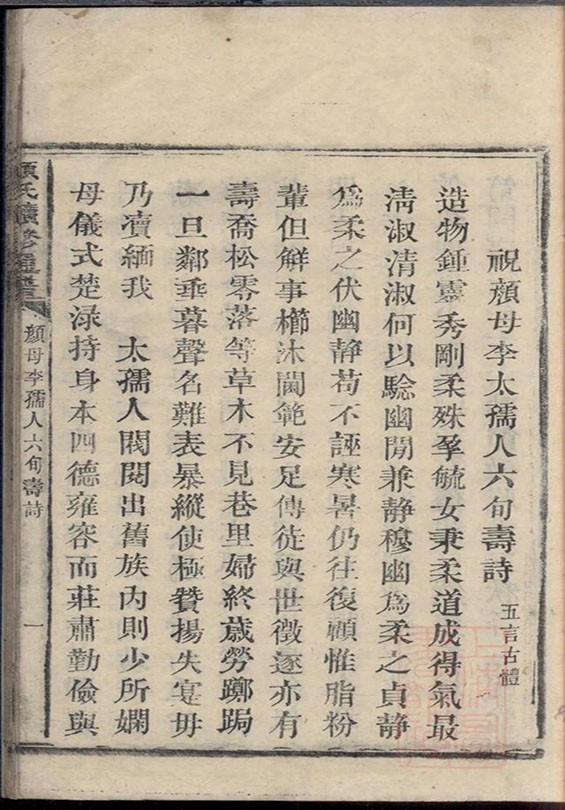 祝顏母李太孺人六旬壽詩 五言古體
造物鍾靈秀剛柔殊孕毓女秉柔道成得氣最
清淑清淑何以騐幽閒兼静穆幽爲柔之貞静
爲柔之伏幽静苟不誣寒暑仍往復顧惟脂粉
輩但觧事櫛沐閫範安足傳徒與世徵逐亦有
壽喬松零落等草木不見巷里婦終歲勞躑跼
一旦鄰垂暮聲名難表暴縱使極贊揚失寔毋
乃凟緬我 太孺人閥閱出舊族内則少所嫻
母儀式楚渌持身本四德雍容而莊肅勤儉與
顏氏續修通譜
顏母李孺人六旬壽詩
一